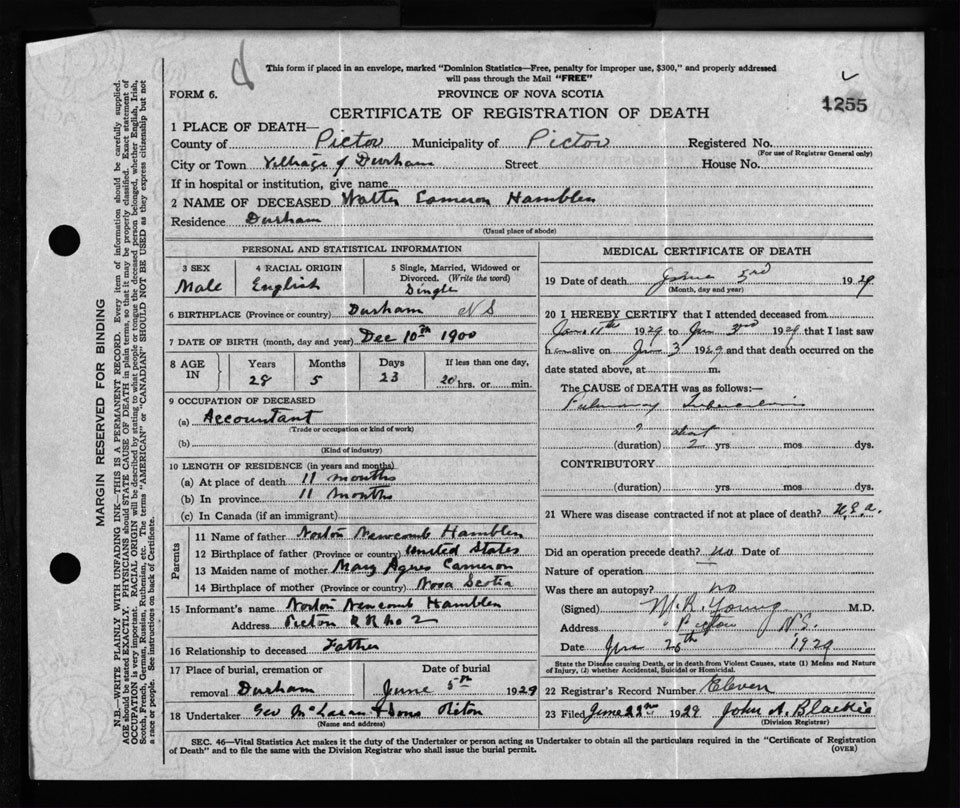 This form if placed in an envelope, marked "Dominion Statistics—Free, penalty for improper use, $300," and properly addressed
will pass through the Mail "FREE"
FORM 6. PROVINCE OF NOVA SCOTIA
1255
CERTIFICATE OF REGISTRATION OF DEATH
1 PLACE OF DEATH—
County of Pictou Municipality of Pictou Registered No.
(For use of Registrar General only)
City or Town Village of Durham Street House No.
If in hospital or institution, give name
2 NAME OF DECEASED Walter Cameron Hamblen
Residence Durham
(Usual place of abode)
PERSONAL AND STATISTICAL INFORMATION
3 SEX 4 RACIAL ORIGIN 5 Single, Married, Widowed or
Divorced. (Write the word)
Male English Single
6 BIRTHPLACE (Province or country) Durham N S
7 DATE OF BIRTH (month, day and year) Dec 10th 1900
8 AGE IN Years Months Days If less than one day,
28 5 23 20 hrs. or min.
9 OCCUPATION OF DECEASED
(a) Accountant
(Trade or occupation or kind of work)
(b)
(Kind of industry)
10 LENGTH OF RESIDENCE (in years and months)
(a) At place of death 11 months
(b) In province 11 months
(c) In Canada (if an immigrant)
Parents
11 Name of father Norton Newcomb Hamblen
12 Birthplace of father (Province or country) United States
13 Maiden name of mother Mary Agnes Cameron
14 Birthplace of mother (Province or country) Nova Scotia
15 Informant's name Norton Newcomb Hamblen
Address Pictou R R No 2
16 Relationship to deceased Father
17 Place of burial, cremation or Date of burial
removal Durham June 5th 1929
18 Undertaker Geo McLaren & Sons Pictou
(Name and address)
MEDICAL CERTIFICATE OF DEATH
19 Date of death June 3rd 1929
(Month, day and year)
20 I HEREBY CERTIFY that I attended deceased from
11th 1929 to June 3rd 1929 that I last saw
h im alive on June 3 1929 and that death occurred on the
date stated above, at m.
The CAUSE of DEATH was as follows:—
Pulmonary Tuberculosis
? about
(duration) 2 yrs. mos. dys.
CONTRIBUTORY
(duration) yrs. mos. dys.
21 Where was disease contracted if not at place of death? U.S.A.
Did an operation precede death? no Date of
Nature of operation —
Was there an autopsy? no
(Signed) M. R. Young M.D.
Address Pictou N.S.
Date June 1929
State the Disease causing Death, or in death from Violent Causes, state (1) Means and Nature
of Injury, (2) whether Accidental, Suicidal or Homicidal.
22 Registrar's Record Number Eleven
23 Filed June 22nd 1929 John A. Blackie
(Division Registrar)
SEC. 46—Vital Statistics Act makes it the duty of the Undertaker or person acting as Undertaker to obtain all the particulars required in the "Certificate of Registration
of Death" and to file the same with the Division Registrar who shall issue the burial permit. (OVER)
MARGIN RESERVED FOR BINDING
N.B.—WRITE PLAINLY WITH UNFADING INK—THIS IS A PERMANENT RECORD. Every item of information should be carefully supplied.
AGE should be stated EXACTLY. PHYSICIANS should STATE CAUSE OF DEATH in plain terms, so that it may be properly classified. Exact statement of
OCCUPATION is very important. RACIAL ORIGIN will be described by stating to what people or tongue the deceased person belonged, whether English, Irish,
Scotch, French, German, Russian, Ruthenian, etc. The terms "AMERICAN" or "CANADIAN" SHOULD NOT BE USED as they express citizenship but not
a race or people. See instructions on back of Certificate.